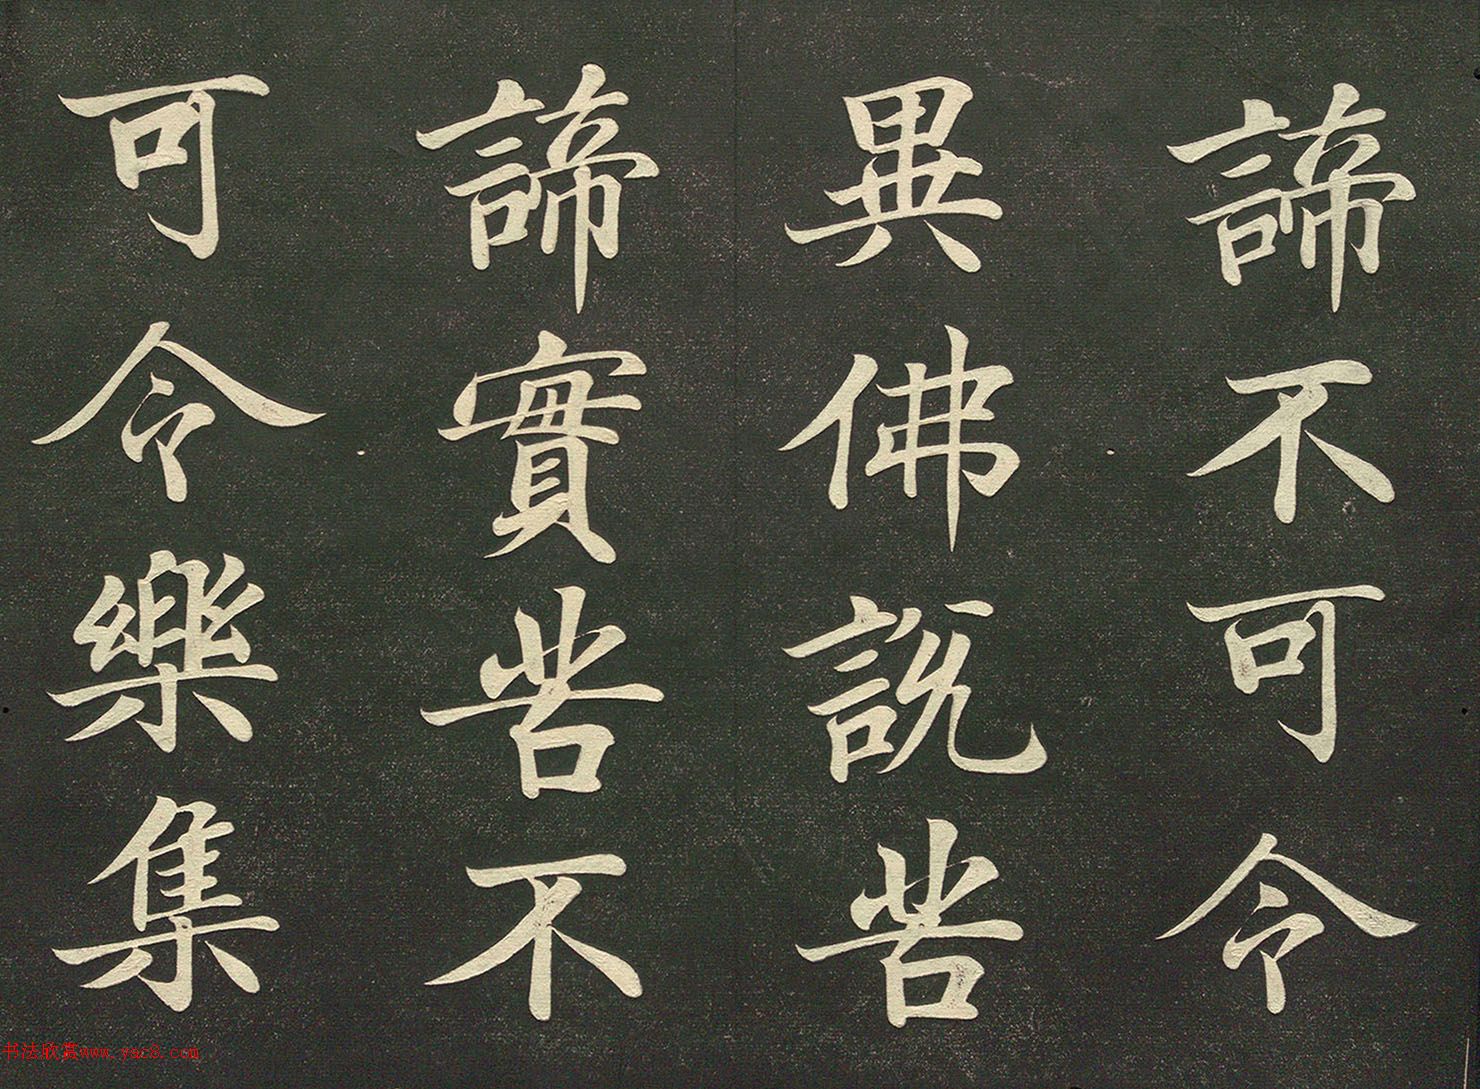 諦不可令
異佛說苦
諦實苦不
可令樂集
书法欣赏www.yac8.com